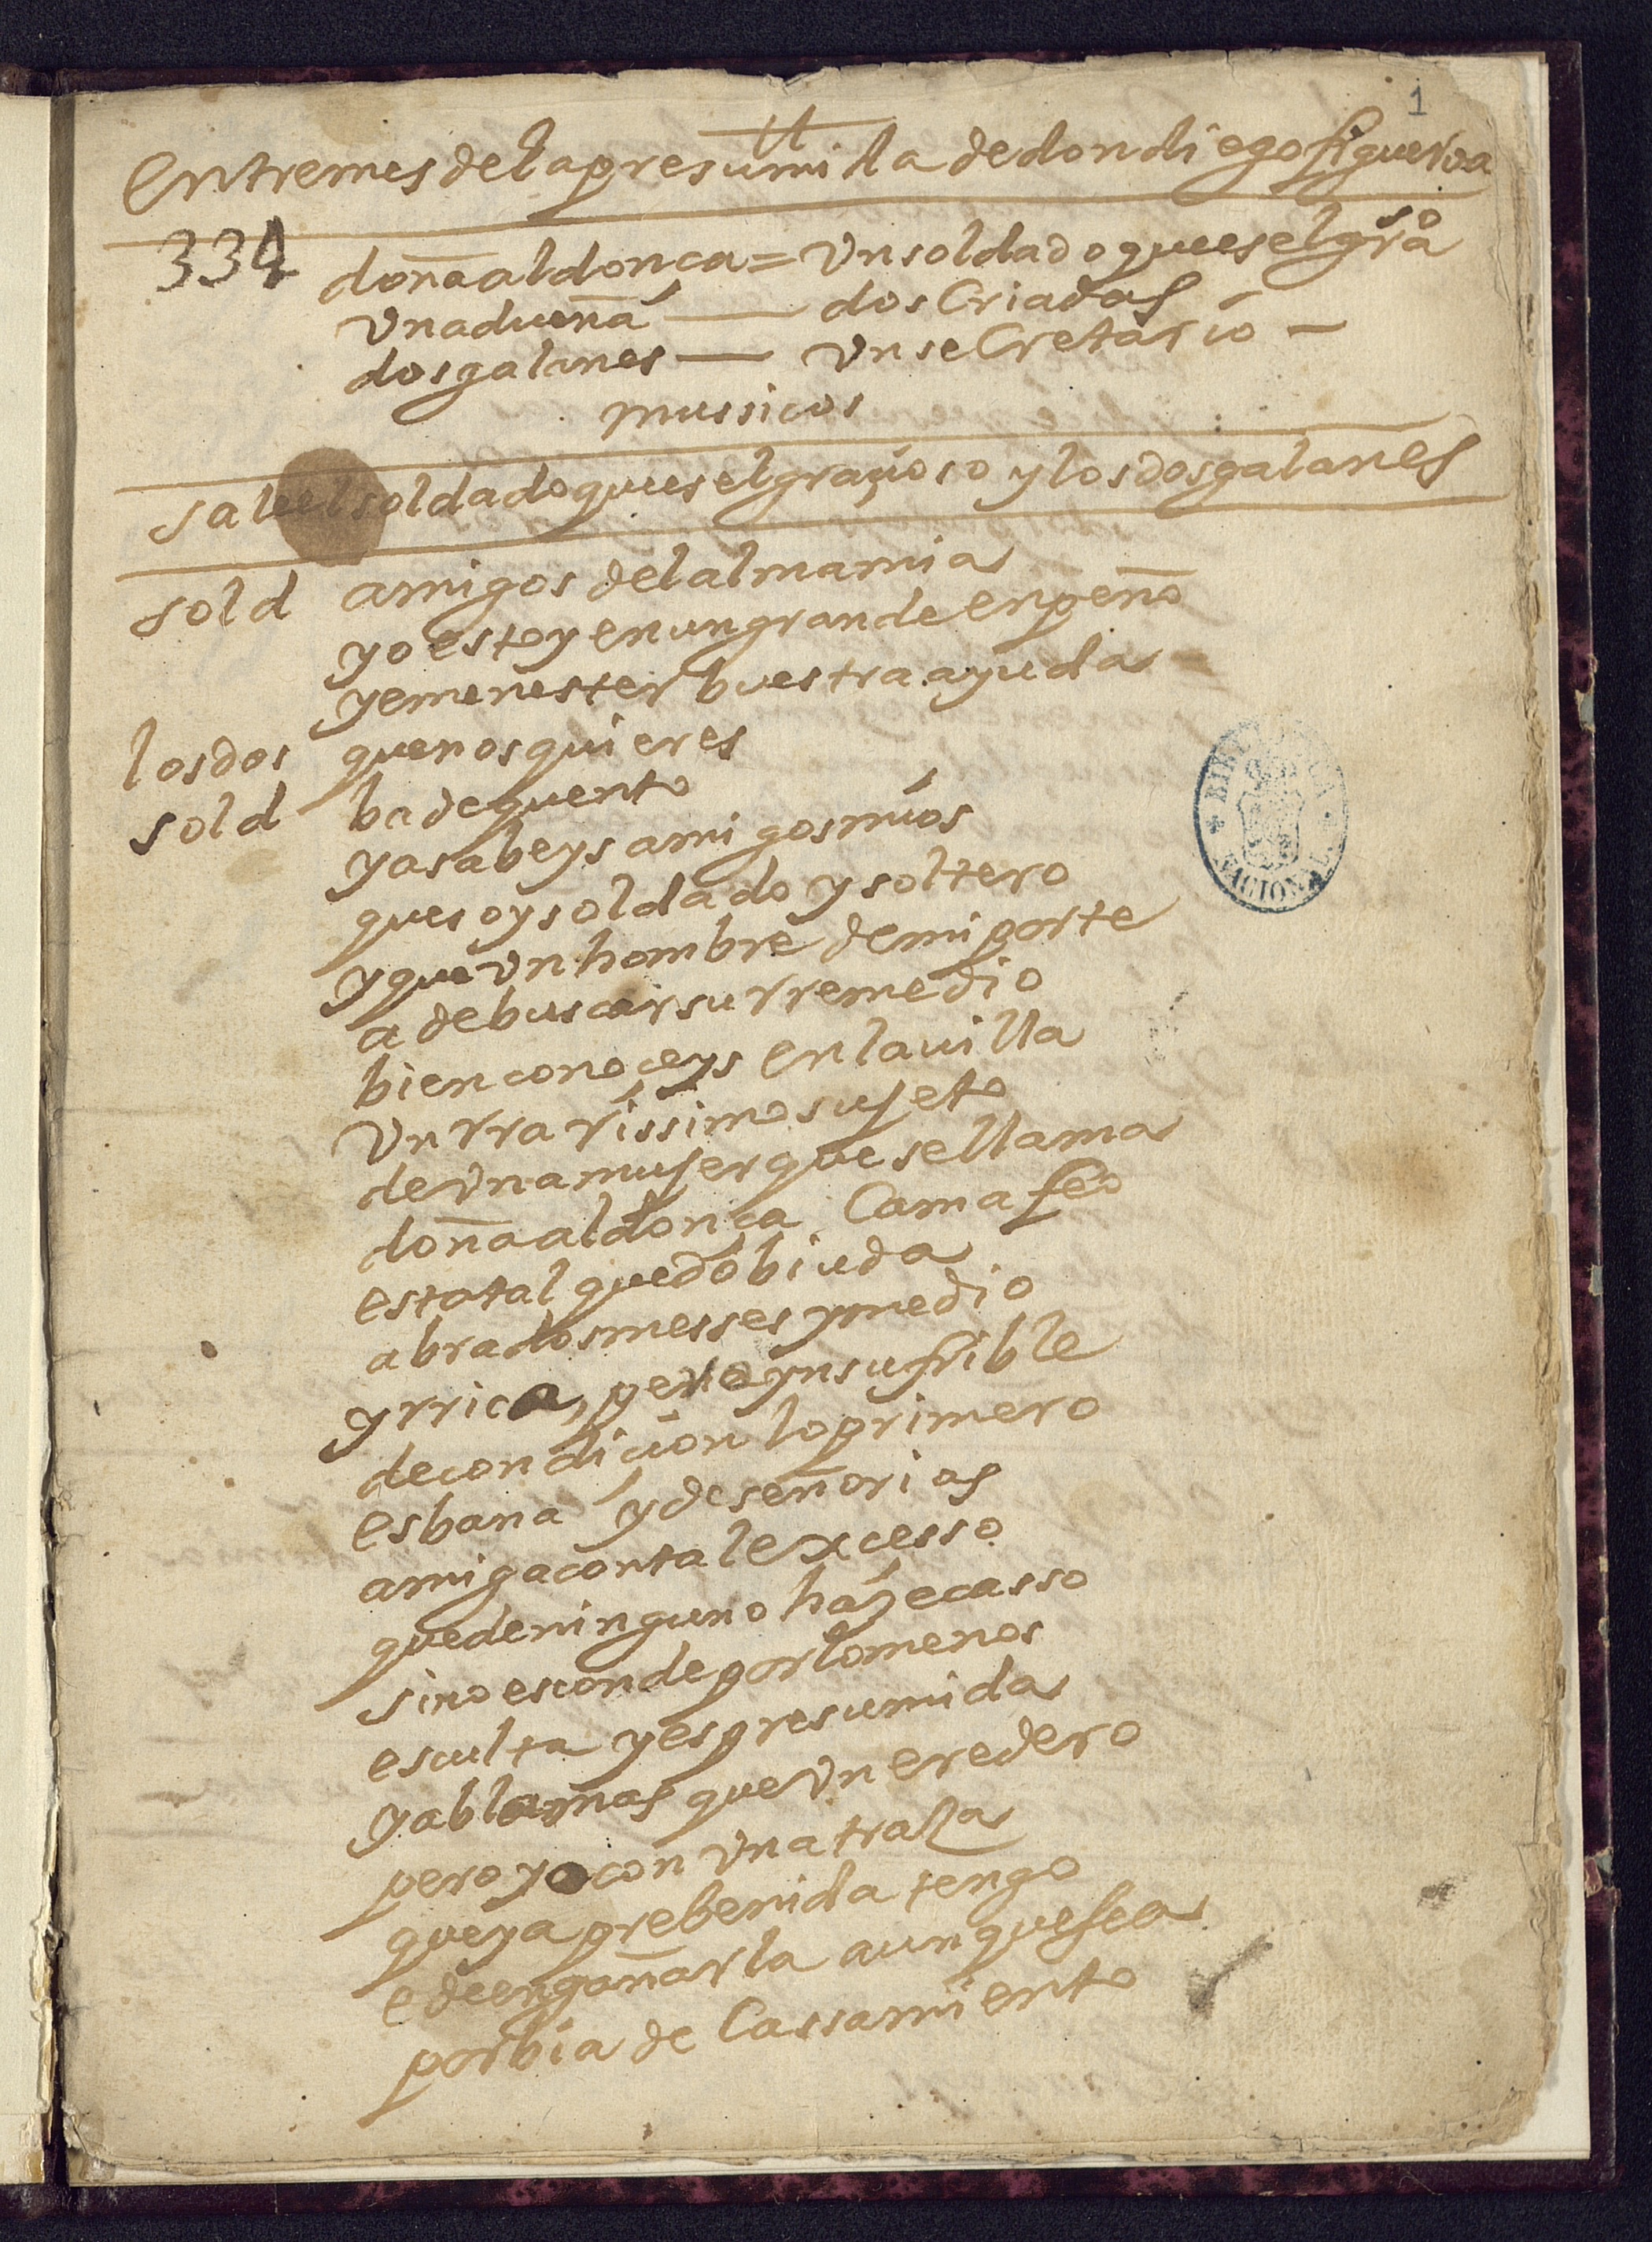 1
entremes de la presumida de don diego figueroa
334
doña aldonça = Un soldado que es el gra^so
Una dueña — dos Criadas
dos galanes — Un seCretario —
mussicos
sale el soldado que es el graçioso y los dos galanes
sold amigos del alma mia
yo estoy en un grande enpeño
y e menester buestra ayuda
los dos que nos quieres
sold ba de quento
ya sabeys amigos mios
que soy soldado y soltero
y que Un hombre de mi porte
a de buscar su rremedio
bien conoceys en la uilla
Un rrarissimo sujeto
de Una mujer que se llama
doña aldonça Camafeo
esta tal quedo biuda
abra dos messes y medio
y rrica, pero ynsufrible
de condicion lo primero
es bana y de señorias
amiga con tal excesso
que de ninguno haze casso
si no es conde por lo menos
es culta y es presumida
y abla mas que Un eredero
pero yo con Una traza
que ya prebenida tengo
e de engañarla aunque sea
por bia de Cassamiento
BIBLIOTECA NACIONAL